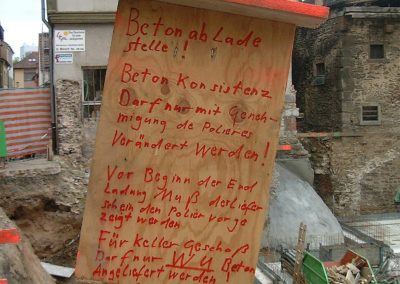 Beton ab Lade
stelle !
Beton Konsistenz
Darf nur mit Geneh-
migung de Polieres
Verändert werden !
Vor Beginn der End
Ladung Muß der Liefer
schein den Polier vorge
zeigt werden
Für Keller Geschoß
Darf nur WU Beton
Angeliefert werden